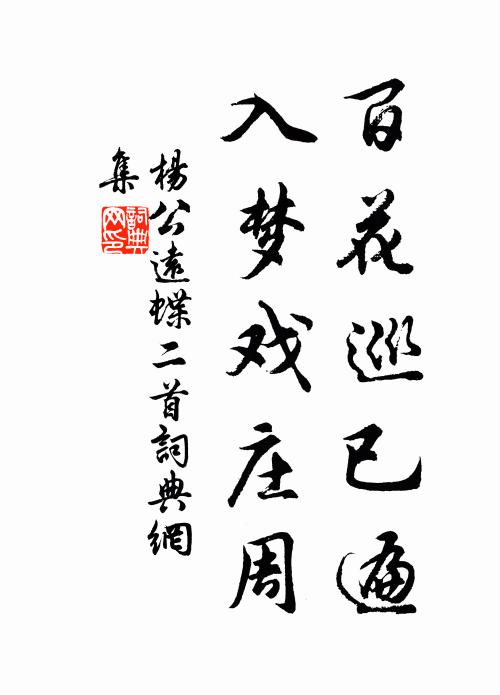 百花巡已遍
入梦戏庄周
楊公遠蝶二首詞典網
集
詞典
网印